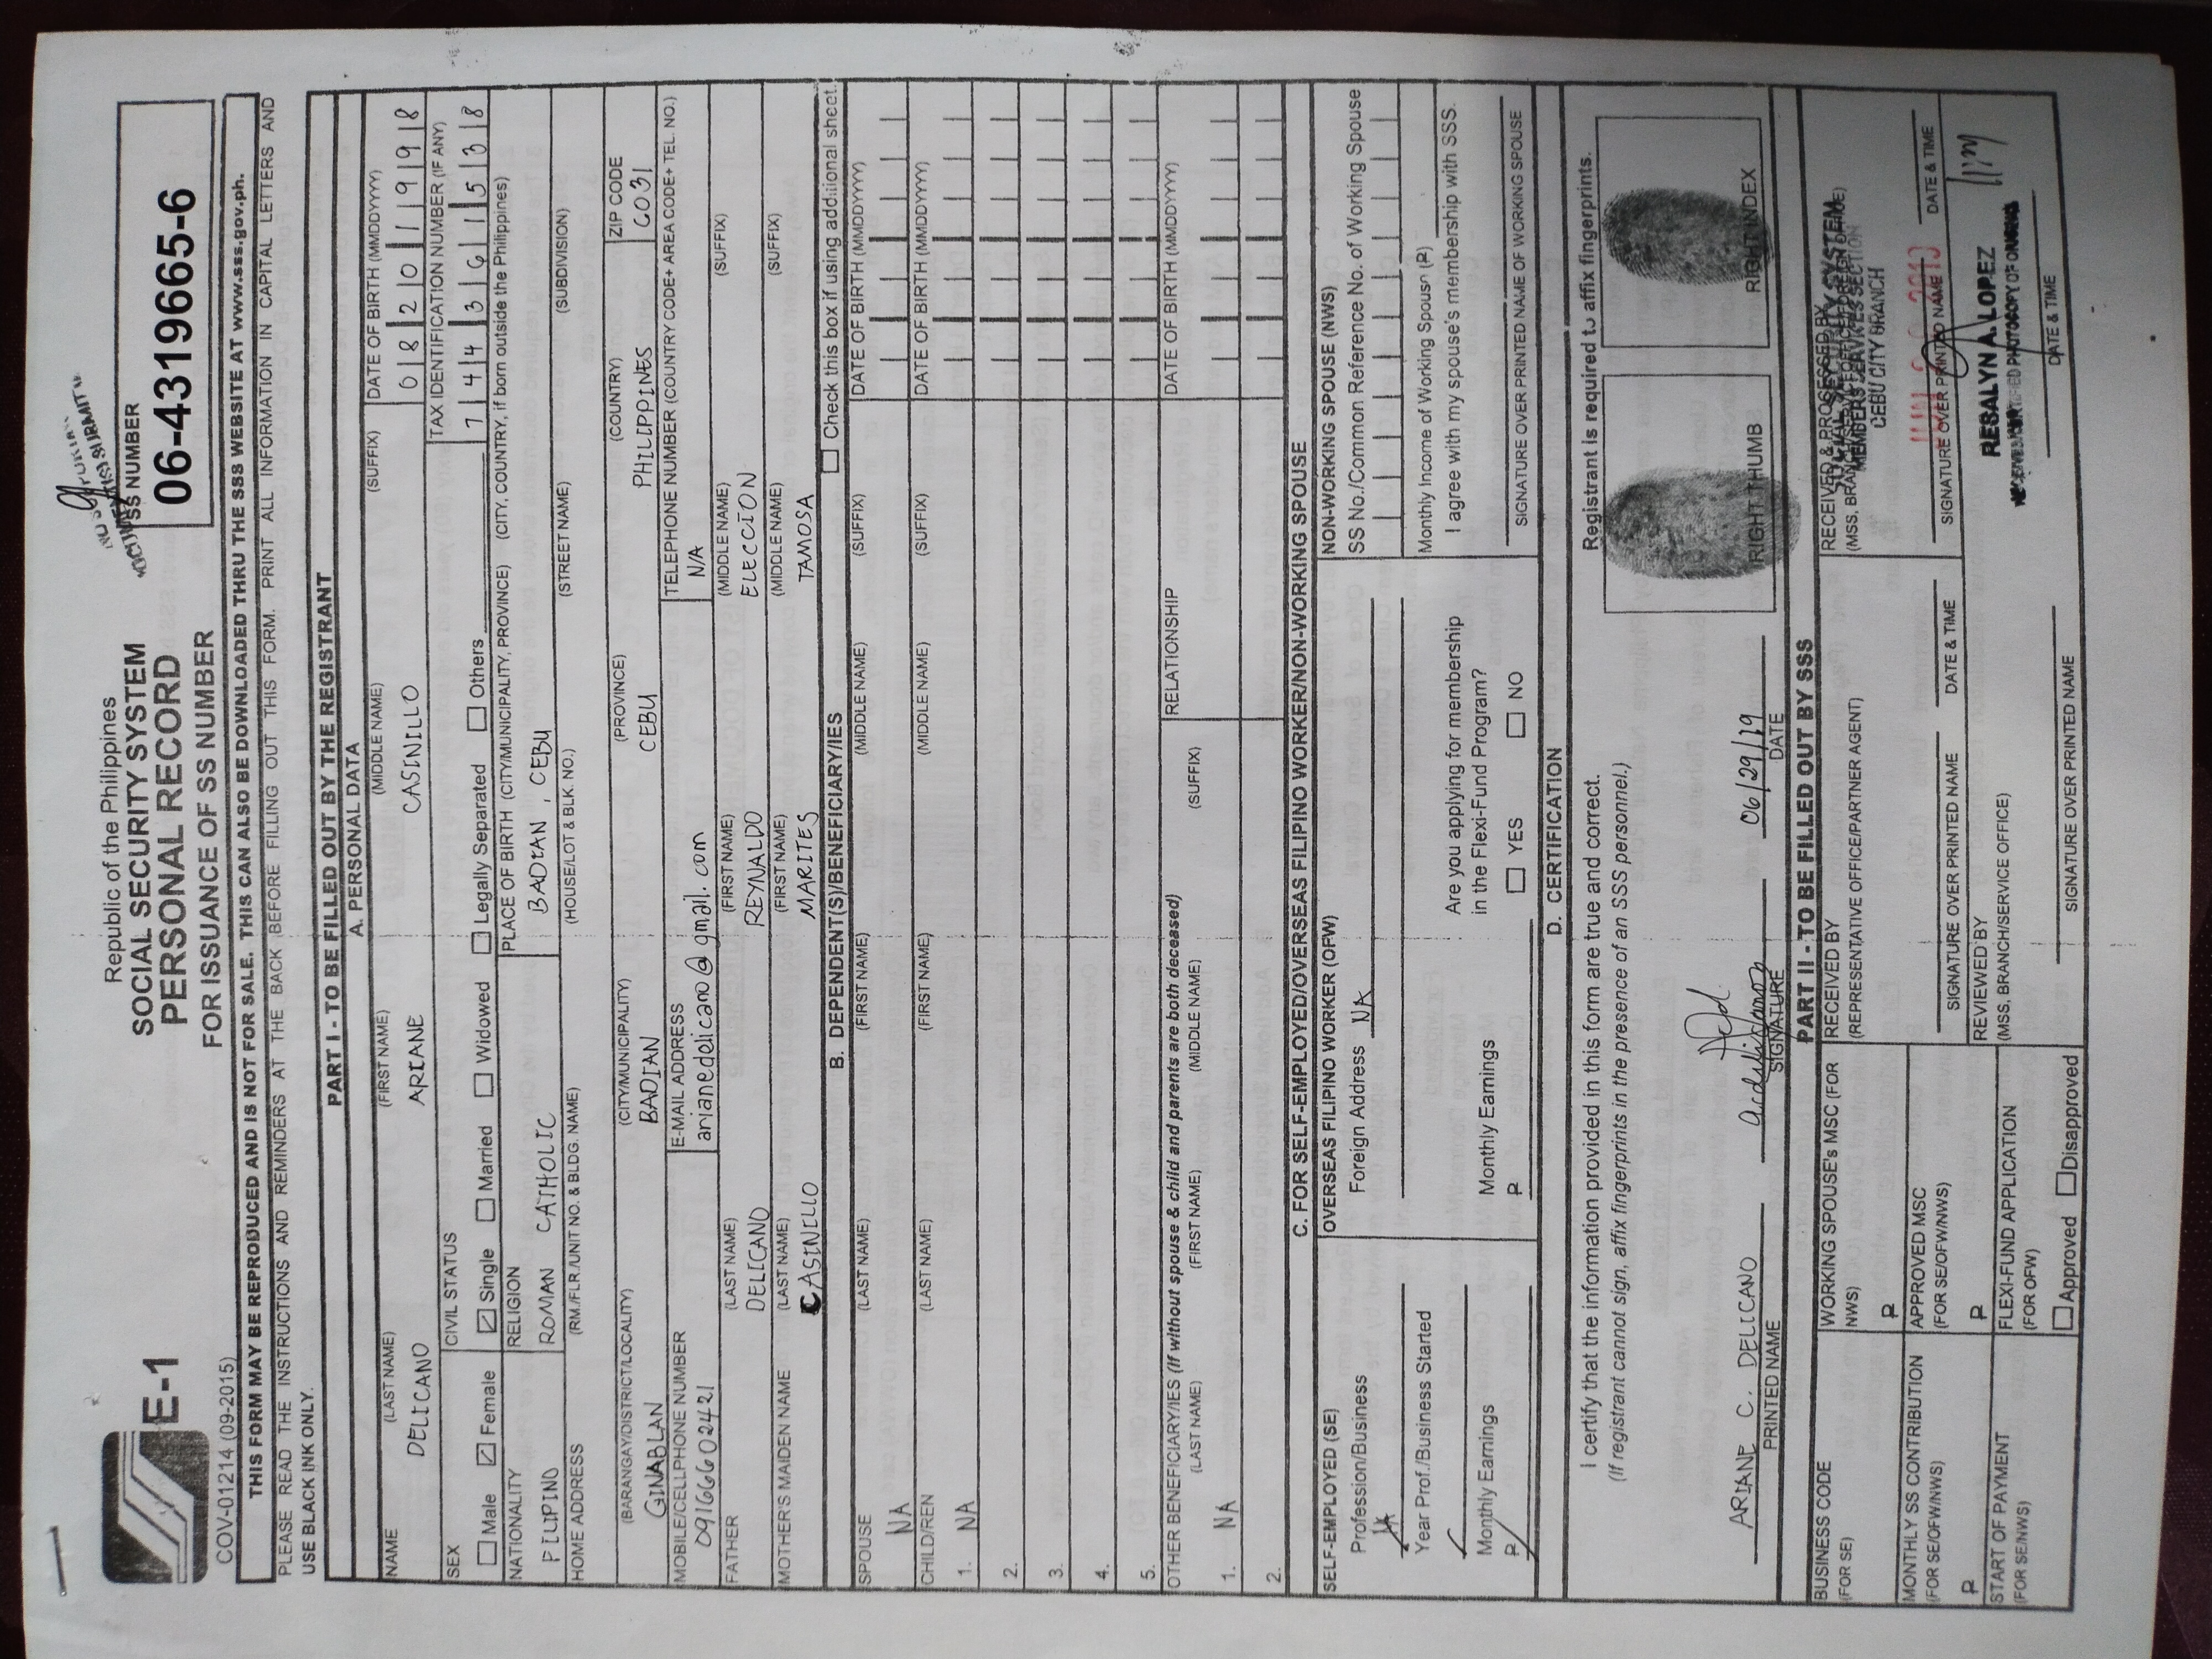 Republic of the Philippines
SOCIAL SECURITY SYSTEM
PERSONAL RECORD
FOR ISSUANCE OF SS NUMBER
E-1
COV-01214 (09-2015)
SS NUMBER
06-4319665-6
THIS FORM MAY BE REPRODUCED AND IS NOT FOR SALE. THIS CAN ALSO BE DOWNLOADED THRU THE SSS WEBSITE AT www.sss.gov.ph.
PLEASE READ THE INSTRUCTIONS AND REMINDERS AT THE BACK BEFORE FILLING OUT THIS FORM. PRINT ALL INFORMATION IN CAPITAL LETTERS AND
USE BLACK INK ONLY.
PART I - TO BE FILLED OUT BY THE REGISTRANT
A. PERSONAL DATA
NAME (LAST NAME) (FIRST NAME) (MIDDLE NAME) (SUFFIX) DATE OF BIRTH (MMDDYYYY)
DELICANO ARIANE CASINILLO 08201998
SEX CIVIL STATUS TAX IDENTIFICATION NUMBER (IF ANY)
Male Female Single Married Widowed Legally Separated Others 744361538
NATIONALITY RELIGION PLACE OF BIRTH (CITY/MUNICIPALITY, PROVINCE) (CITY, COUNTRY, if born outside the Philippines)
FILIPINO ROMAN CATHOLIC BADIAN, CEBU
HOME ADDRESS (RM./FLR./UNIT NO. & BLDG. NAME) (HOUSE/LOT & BLK. NO.) (STREET NAME) (SUBDIVISION)
(BARANGAY/DISTRICT/LOCALITY) (CITY/MUNICIPALITY) (PROVINCE) (COUNTRY) ZIP CODE
GINABLAN BADIAN CEBU PHILIPPINES 6031
MOBILE/CELLPHONE NUMBER E-MAIL ADDRESS TELEPHONE NUMBER (COUNTRY CODE+ AREA CODE+ TEL. NO.)
09166602421 arianedelicano@gmail.com NA
FATHER (LAST NAME) (FIRST NAME) (MIDDLE NAME) (SUFFIX)
DELICANO REYNALDO ELECCION
MOTHER'S MAIDEN NAME (LAST NAME) (FIRST NAME) (MIDDLE NAME) (SUFFIX)
CASINILLO MARITES TAMOSA
B. DEPENDENT(S)/BENEFICIARY/IES Check this box if using additional sheet.
SPOUSE (LAST NAME) (FIRST NAME) (MIDDLE NAME) (SUFFIX) DATE OF BIRTH (MMDDYYYY)
NA
CHILD/REN (LAST NAME) (FIRST NAME) (MIDDLE NAME) (SUFFIX) DATE OF BIRTH (MMDDYYYY)
1. NA
2.
3.
4.
5.
OTHER BENEFICIARY/IES (If without spouse & child and parents are both deceased) RELATIONSHIP DATE OF BIRTH (MMDDYYYY)
(LAST NAME) (FIRST NAME) (MIDDLE NAME) (SUFFIX)
1. NA
2.
C. FOR SELF-EMPLOYED/OVERSEAS FILIPINO WORKER/NON-WORKING SPOUSE
SELF-EMPLOYED (SE) OVERSEAS FILIPINO WORKER (OFW) NON-WORKING SPOUSE (NWS)
Profession/Business Foreign Address NA SS No./Common Reference No. of Working Spouse
Year Prof./Business Started Monthly Income of Working Spouse (₱)
Are you applying for membership I agree with my spouse's membership with SSS.
Monthly Earnings Monthly Earnings in the Flexi-Fund Program?
₱ ₱ YES NO SIGNATURE OVER PRINTED NAME OF WORKING SPOUSE
D. CERTIFICATION
I certify that the information provided in this form are true and correct. Registrant is required to affix fingerprints.
(If registrant cannot sign, affix fingerprints in the presence of an SSS personnel.)
ARIANE C. DELICANO 06/29/19
PRINTED NAME SIGNATURE DATE RIGHT THUMB RIGHT INDEX
PART II - TO BE FILLED OUT BY SSS
BUSINESS CODE WORKING SPOUSE's MSC (FOR RECEIVED BY RECEIVED & PROCESSED BY
(FOR SE) NWS) (REPRESENTATIVE OFFICE/PARTNER AGENT)
₱
SOCIAL SECURITY SYSTEM
MEMBERS SERVICES SECTION
CEBU CITY BRANCH
MONTHLY SS CONTRIBUTION APPROVED MSC
(FOR SE/OFW/NWS) (FOR SE/OFW/NWS) SIGNATURE OVER PRINTED NAME DATE & TIME SIGNATURE OVER PRINTED NAME DATE & TIME
₱ ₱ REVIEWED BY
RESALYN A. LOPEZ
START OF PAYMENT FLEXI-FUND APPLICATION (MSS, BRANCH/SERVICE OFFICE)
(FOR SE/NWS) (FOR OFW)
Approved Disapproved SIGNATURE OVER PRINTED NAME DATE & TIME